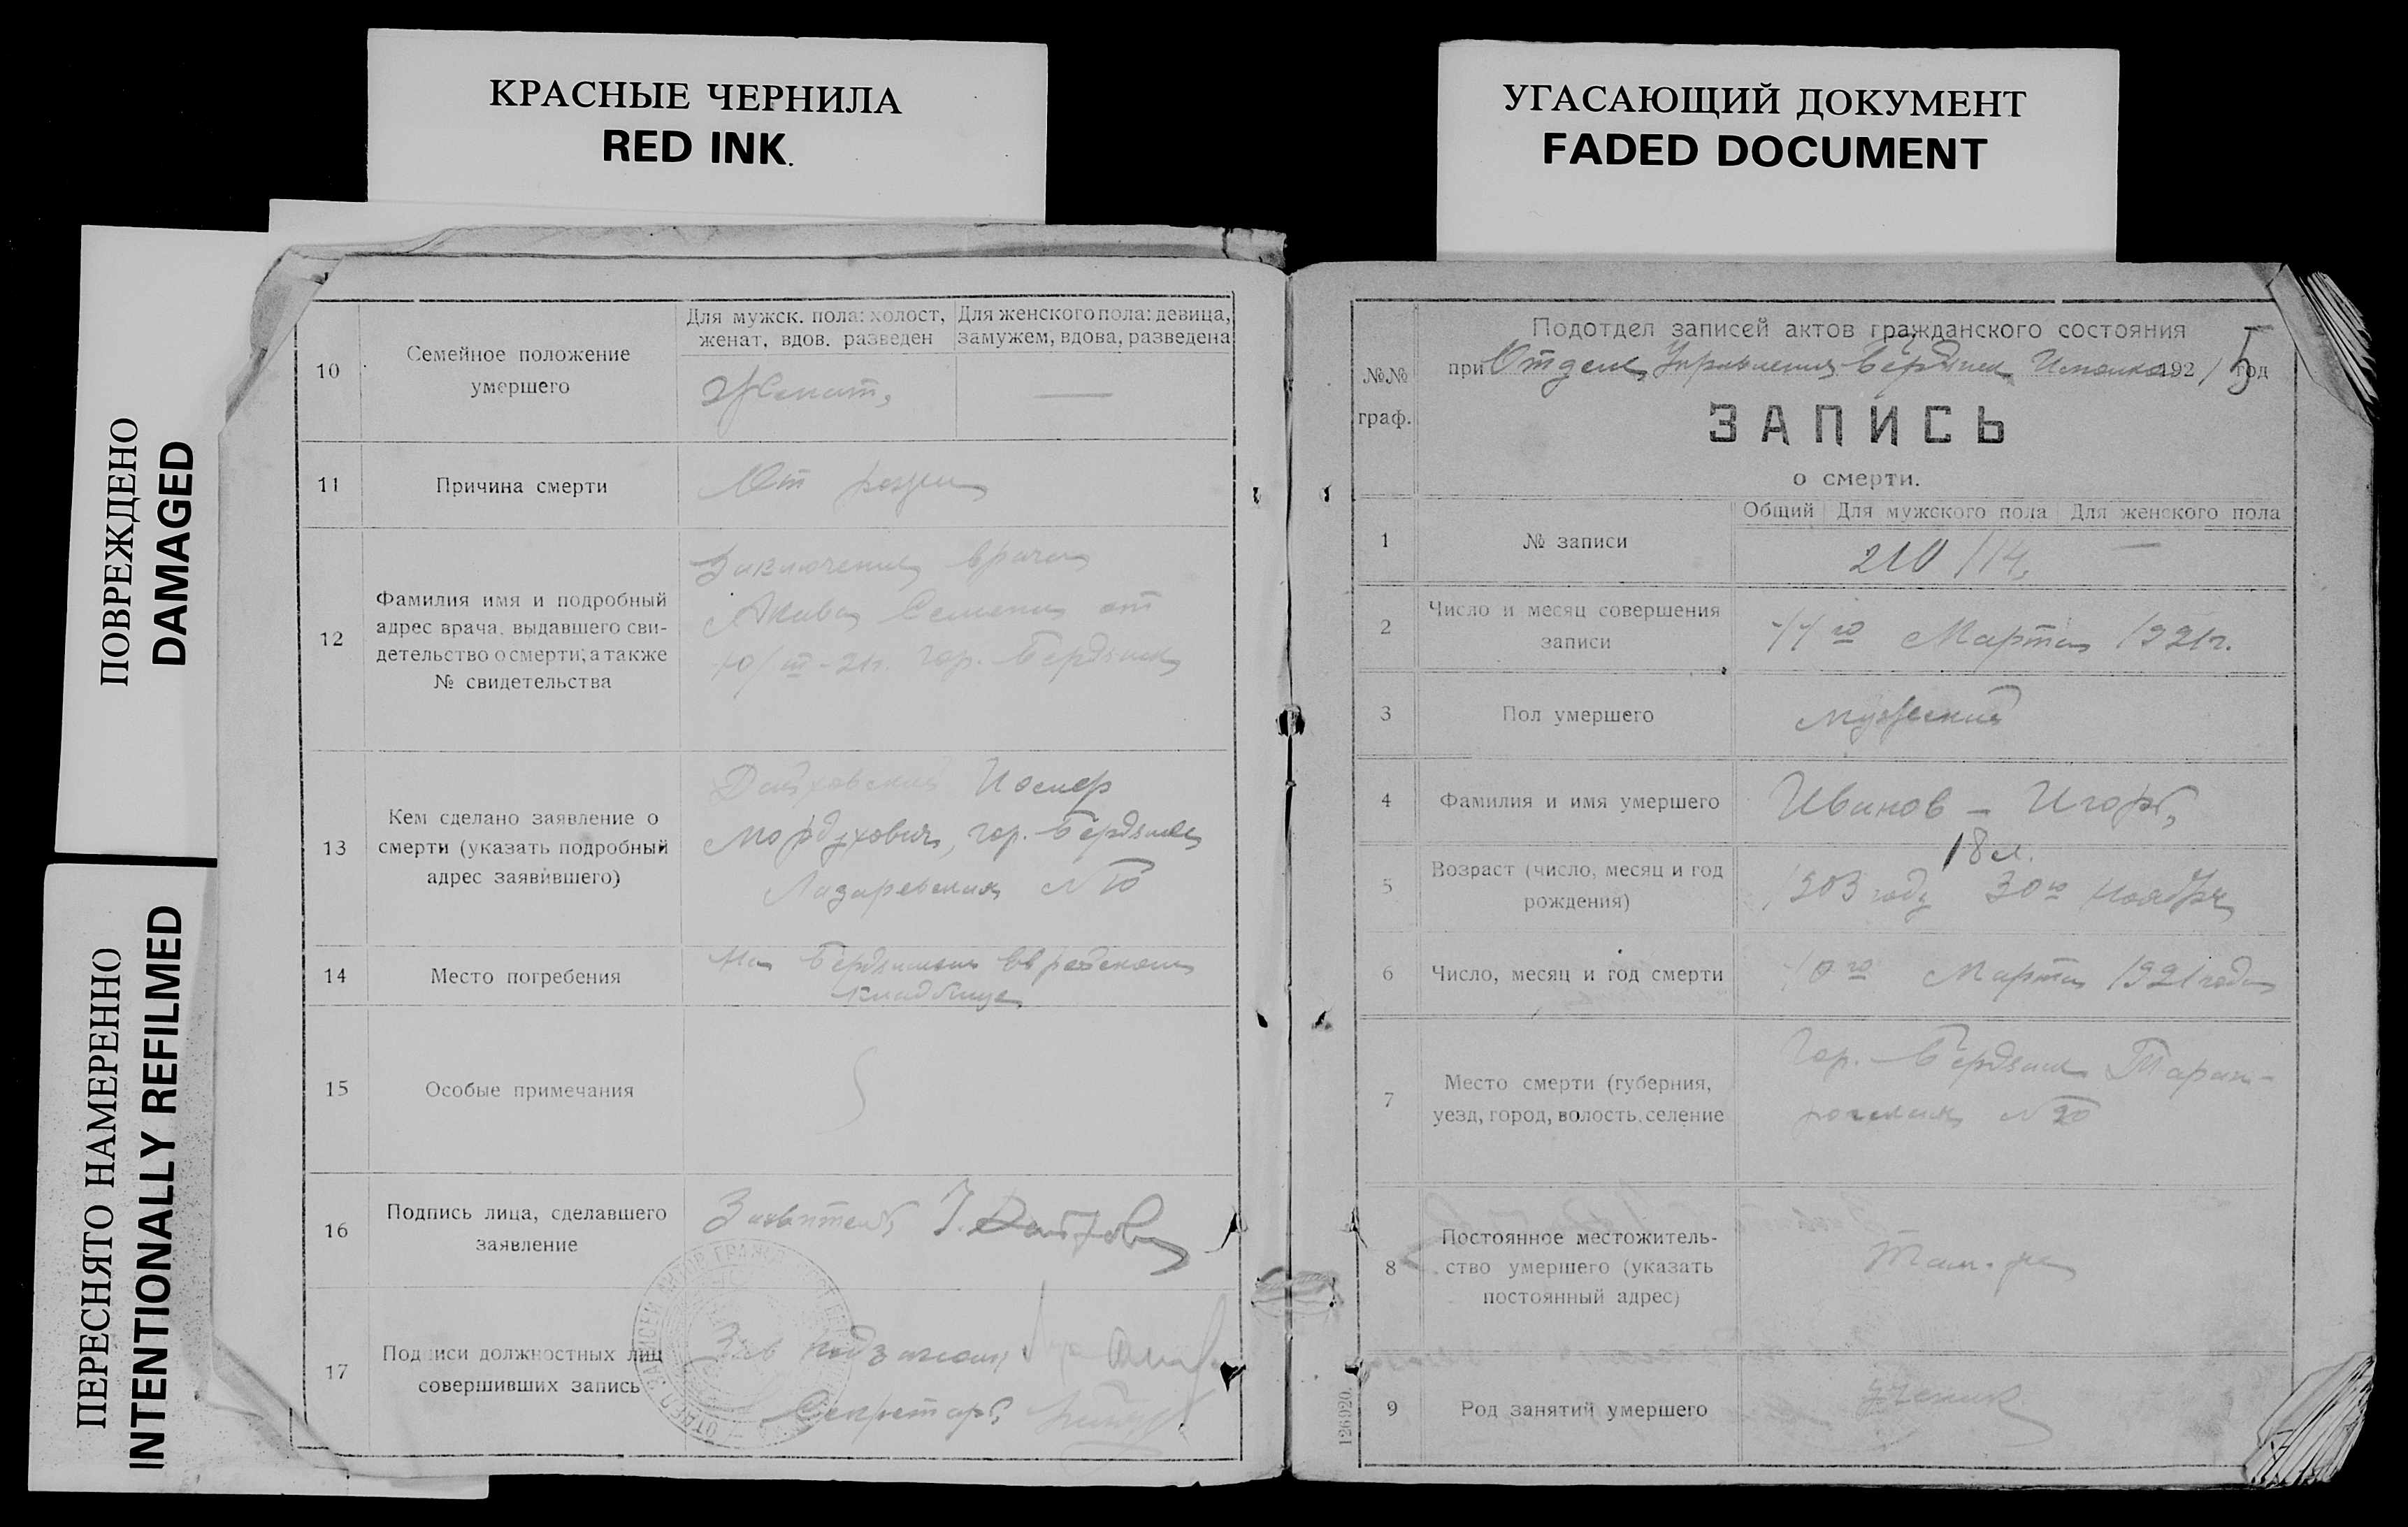 КРАСНЫЕ ЧЕРНИЛА
RED INK.
УГАСАЮЩИЙ ДОКУМЕНТ
FADED DOCUMENT
ПОВРЕЖДЕНО
DAMAGED
ПЕРЕСНЯТО НАМЕРЕННО
INTENTIONALLY REFILMED
10
Семейное положение
умершего
Для мужск. пола: холост,
женат, вдов. разведен
Для женского пола: девица,
замужем, вдова, разведена
Женат,
—
11
Причина смерти
От
12
Фамилия имя и подробный
адрес врача. выдавшего сви-
детельство о смерти; а также
№ свидетельства
Заключение врача
от
10/III-21г. гор. Бердянск
13
Кем сделано заявление о
смерти (указать подробный
адрес заявившего)
Иосиф
Мордухович, гор. Бердянск
Лазаревская №
14
Место погребения
На Бердянском Еврейском
кладбище
15
Особые примечания
16
Подпись лица, сделавшего
заявление
Заявитель
17
Подписи должностных лиц
совершивших запись
Зав
Секретарь
5
Подотдел записей актов гражданского состояния
при Отделе Управления Бердянск 1921 год
№№
граф.
ЗАПИСЬ
о смерти.
1
№ записи
Общий
Для мужского пола
Для женского пола
210/114,
—
2
Число и месяц совершения
записи
11го Марта 1921г.
3
Пол умершего
мужеский
4
Фамилия и имя умершего
Иванов – Игорь,
18 л.
5
Возраст (число, месяц и год
рождения)
1903 году 30го Ноября
6
Число, месяц и год смерти
10го Марта 1921 года
7
Место смерти (губерния,
уезд, город, волость, селение
Гор. Бердянск
8
Постоянное местожитель-
ство умершего (указать
постоянный адрес)
Там-же
9
Род занятий умершего
ученик
126920.